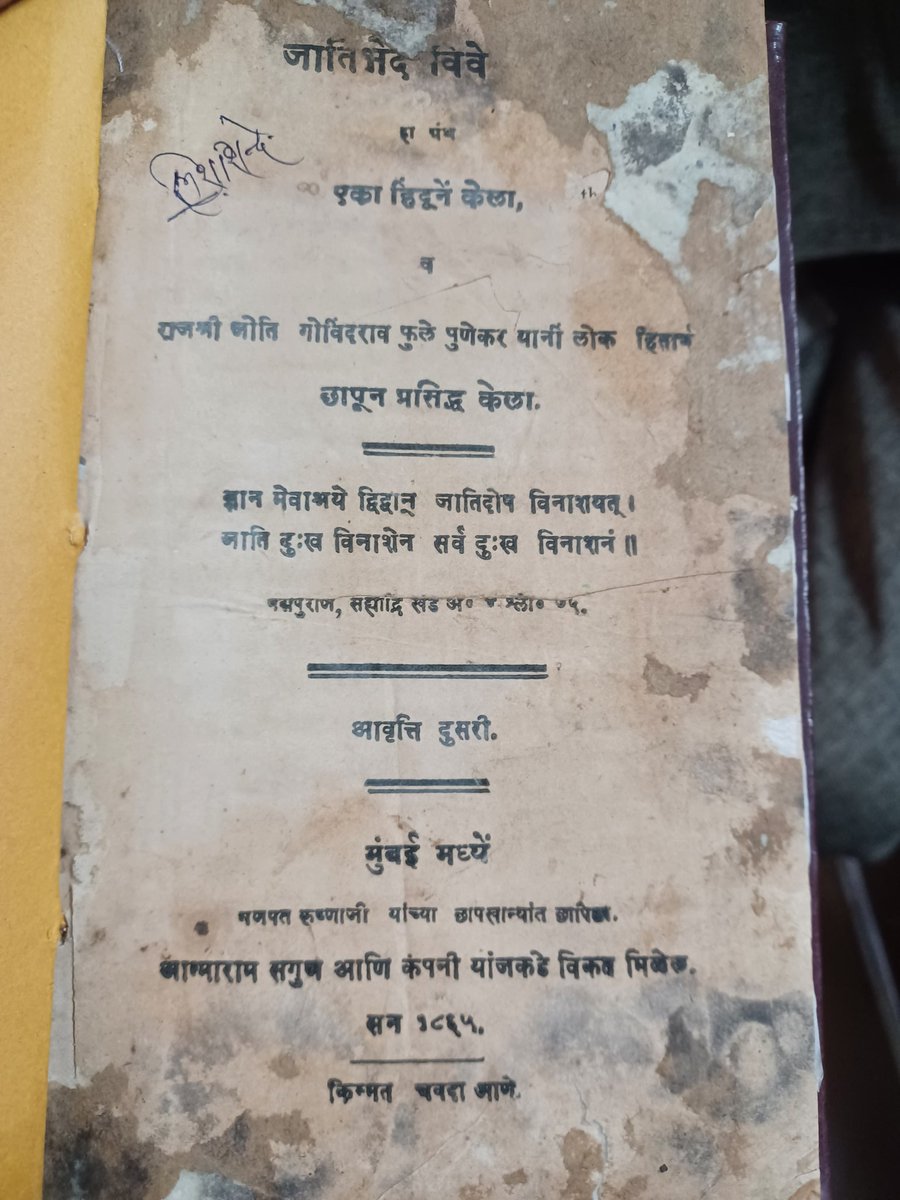 जातिभेद विवे
हा ग्रंथ
एका हिंदूनें केला,
व
राजश्री जोति गोविंदराव फुले पुणेकर यानीं लोक हितार्थ
छापून प्रसिद्ध केला.
ज्ञान मेवाश्रये द्विद्वान् जातिदोष विनाशयत्।
जाति दुःख विनाशेन सर्व दुःख विनाशनं॥
पद्मपुराण, सह्याद्रि खंड अ० ४ श्लो० ७५.
आवृत्ति दुसरी.
मुंबई मध्यें
गणपत कृष्णाजी यांच्या छापखान्यांत छापिला.
आत्माराम सगुण आणि कंपनी यांजकडे विकत मिळेल.
सन १८६५.
किम्मत चवदा आणे.